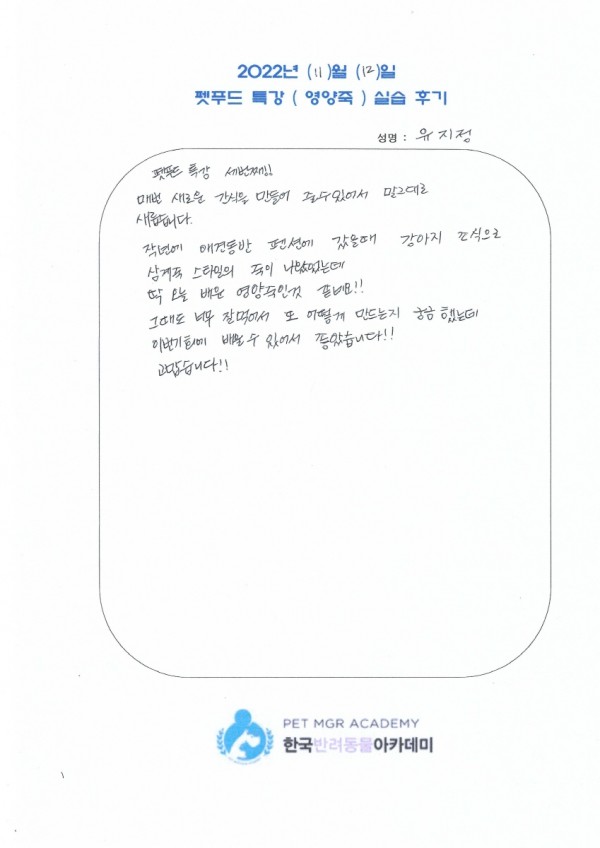 2022년 (11)월 (12)일
펫푸드 특강 ( 영양죽 ) 실습 후기
성명 : 유지정
펫푸드 특강 세번째!!
매번 새로운 간식을 만들어 줄수있어서 말그대로
새롭습니다.
작년에 애견동반 펜션에 갔을때 강아지 조식으로
삼계죽 스타일의 죽이 나왔었는데
딱 오늘 배운 영양죽인것 같네요!!
그때도 너무 잘먹어서 또 어떻게 만드는지 궁금 했는데
이번기회에 배울수 있어서 좋았습니다!!
고맙습니다!!
PET MGR ACADEMY
한국반려동물아카데미